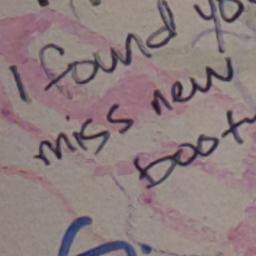 I found yo
miss new
boot